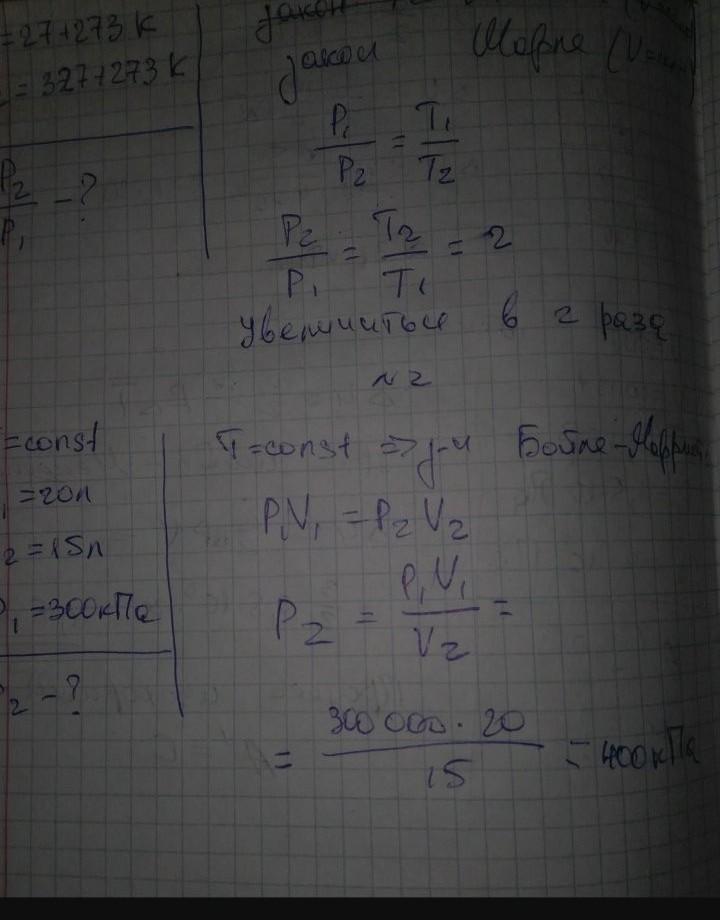 =27+273 K
= 327+273 K
P2/P1 - ?
закон
закон Шарля (V=
P1/P2 = T1/T2
P2/P1 = T2/T1 = 2
увеличиться в 2 раза
№2
=const
1 =20л
2 =15л
P1 =300кПа
2 - ?
T=const => з-н Бойля-Марриот
P1V1 = P2V2
P2 = P1V1/V2 =
= 300 000 · 20/15 = 400кПа